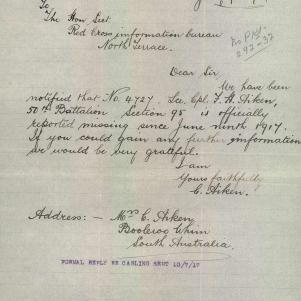 To
The Hon. Sect.
Red Cross information bureau
North Terrace.
Dear Sir
We have been
notified that No. 4727. Lce. Cpl. F. H. Aiken,
50th Battalion Section 95 is officially
reported missing since June ninth 1917.
If you could gain any further information
we would be very grateful.
I am
Yours faithfully
C. Aiken.
Address: - Mrs C. Aiken
Booleroo Whim
South Australia.
FORMAL REPLY RE CABLING SENT 10/7/17